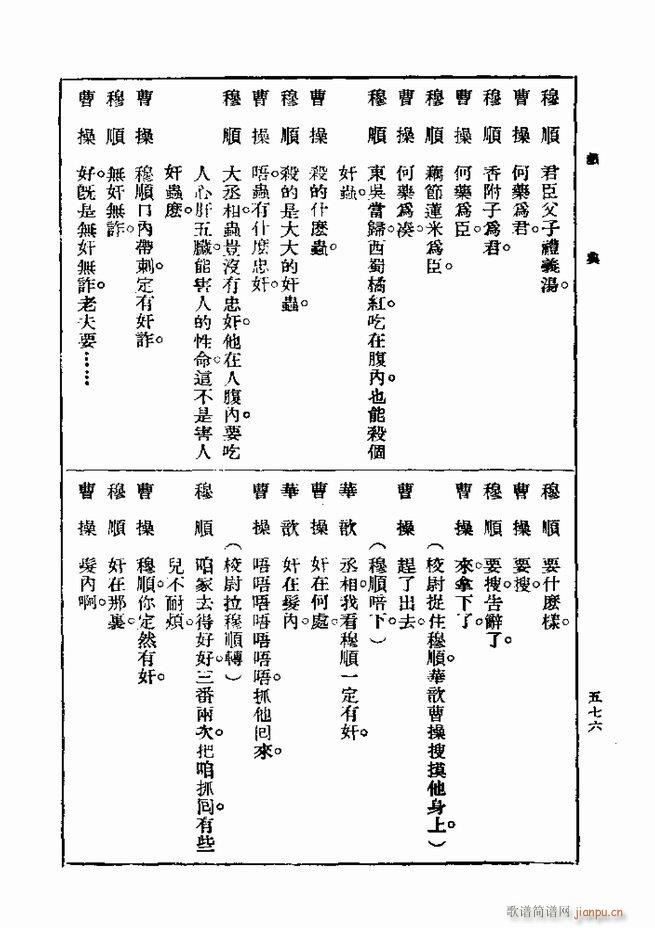 典
五七六
穆順 君臣父子禮義湯。
曹操 何藥爲君。
穆順 香附子爲君。
曹操 何藥爲臣。
穆順 藕節蓮米爲臣。
曹操 何藥爲湊。
穆順 東吳當歸西蜀橘紅吃在腹內。也能殺個
奸蟲。
曹操 殺的什麽蟲。
穆順 殺的是大大的奸蟲。
曹操 唔。蟲有什麽忠奸。
穆順 大丞相。蟲豈沒有忠奸。他在人腹內。要吃
人心肝五臟。能害人的性命。這不是害人
奸蟲麽。
曹操 穆順口內帶刺。定有奸詐。
穆順 無奸無詐。
曹操 好。旣是無奸無詐。老夫要……
穆順 要什麽樣。
曹操 要搜。
穆順 要搜。告辭了。
曹操 來。拿下了。
(校尉捉住穆順。華歆曹操搜摸他身上。)
曹操 趕了出去。
(穆順暗下)
華歆 丞相。我看穆順一定有奸。
曹操 奸在何處。
華歆 奸在髮內。
曹操 唔唔唔唔唔唔。抓他回來。
(校尉拉穆順轉)
穆順 咱家去得好好。三番兩次。把咱抓回。有些
兒不耐煩。
曹操 穆順。你定然有奸。
穆順 奸在那裏。
曹操 髮內啊。
歌谱简谱网
jianpu.cn